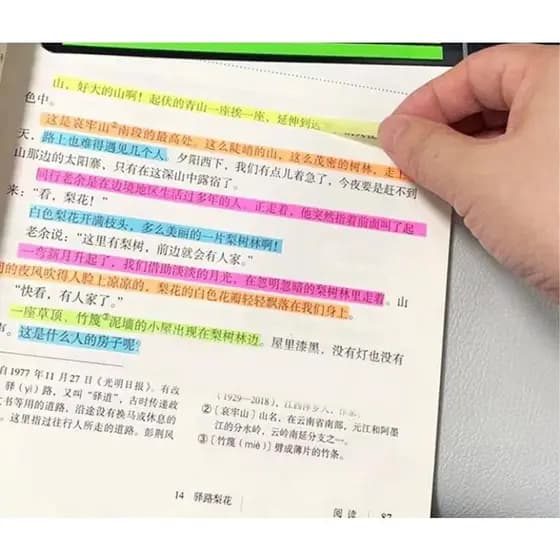 山，好大的山啊！起伏的青山一座挨一座，延伸到远
色中。
这是哀牢山②南段的最高处。这么陡峭的山，这么茂密的树林，走上
天，路上也难得遇见几个人。夕阳西下，我们有点儿着急了，今夜要是赶不到
山那边的太阳寨，只有在这深山中露宿了。
同行老余是在边境地区生活过多年的人。正走着，他突然指着前面叫了起
来：“看，梨花！”
白色梨花开满枝头，多么美丽的一片梨树林啊！
老余说：“这里有梨树，前边就会有人家。”
一弯新月升起了，我们借助淡淡的月光，在忽明忽暗的梨树林里走着。山
的夜风吹得人脸上凉凉的，梨花的白色花瓣轻轻飘落在我们身上。
“快看，有人家了。”
一座草顶、竹篾③泥墙的小屋出现在梨树林边。屋里漆黑，没有灯也没有
声。这是什么人的房子呢？
自1977年11月27日《光明日报》。有改
驿（yì）路，又叫“驿道”，古时传递政
文书等用的道路，沿途设有换马或休息的
。这里指过往行人所走的道路。彭荆风
（1929—2018），江西萍乡人，作家。
②〔哀牢山〕山名，在云南省南部，元江和阿墨
江的分水岭，云岭南延分支之一。
③〔竹篾（miè）〕劈成薄片的竹条。
14 驿路梨花
阅读 87